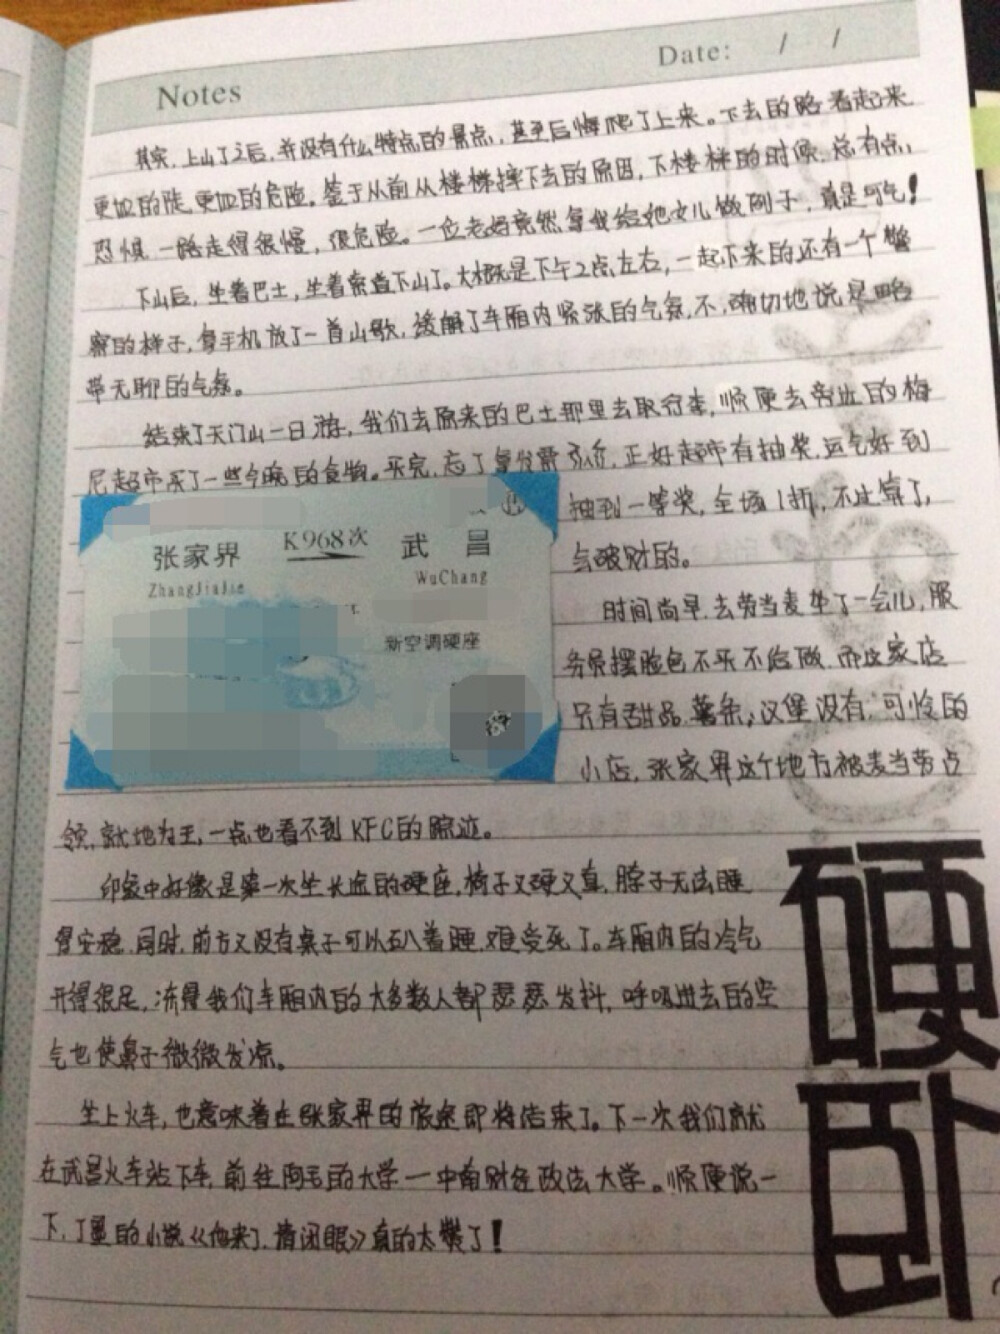 Notes
Date: / /
其实,上山了之后,并没有什么特点的景点,甚至后悔爬了上来。下去的路看起来
更加的陡,更加的危险。鉴于从前从楼梯摔下去的原因,下楼梯的时候,总有点,
恐惧,一路走得很慢,很危险。一位老妈竟然拿我给她女儿做例子,真是可气!
下山后,坐着巴士,坐着索道下山了。大概是下午2点左右,一起下来的还有一个警
察的样子,拿手机放了一首山歌,缓解了车厢内紧张的气氛,不,确切地说是略
带无聊的气氛。
结束了天门山一日游,我们去原来的巴士那里去取行李,顺便去旁边的梅
尼超市买了一些今晚的食物。买完,忘了拿发票,正好超市有抽奖,运气好到
抽到一等奖,全场1折,不过算了,
气破财的。
张家界 K968次 武昌
ZhangJiaJie WuChang
新空调硬座
时间尚早,去劳当麦坐了一会儿,服
务员摆脸色不买不给做,而这家店
只有甜品,薯条,汉堡没有,可怜的
小店,张家界这个地方被麦当劳占
领,就地为王,一点也看不到KFC的踪迹。
印象中好像是第一次坐长途的硬座,椅子又硬又直,脖子无法睡
得安稳,同时,前方又没有桌子可以趴着睡,难受死了。车厢内的冷气
开得很足,冻得我们车厢内的大多数人都瑟瑟发抖,呼吸进去的空
气也使鼻子微微发凉。
坐上火车,也意味着在张家界的旅途即将结束了。下一次我们就
在武昌火车站下车,前往阿毛的大学一中南财经政法大学。顺便说一
下,丁墨的小说《他来了,请闭眼》真的太赞了!
硬卧